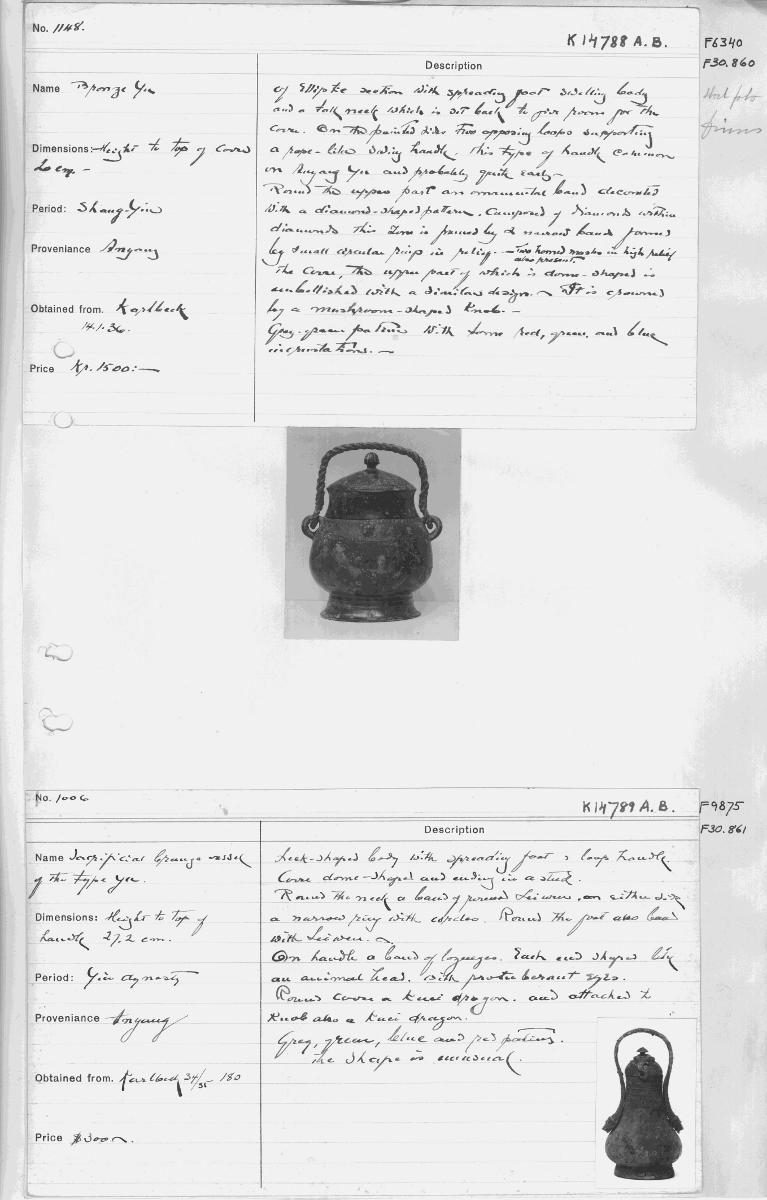 No. 1148.
K 14788 A. B.
F6340
F30.860
Description
Name Bronze Yu
Dimensions: Height to top of cover
20 cm. -
Period: Shang-Yin
Proveniance Anyang
Obtained from. Karlbeck
14.1.36.
Price Kr. 1500:-
of Elliptic section with spreading foot swelling body
and a tall neck which is set back to give room for the
cover. On the pointed sides two opposing loops supporting
a rope-like swing handle. This type of handle common
on Anyang Yu and probably quite early -
Round the upper part an ornamental band decorated
with a diamond-shaped pattern. Composed of diamonds within
diamonds this zone is framed by 2 narrow bands formed
by small circular rings in relief. - Two horned masks in high relief
also present.
The cover, the upper part of which is dome-shaped is
embellished with a similar design. - It is crowned
by a mushroom-shaped knob. -
Grey-green patina with some red, green, and blue
incrustations. -
No. 1006
K 14789 A. B.
F9875
F30.861
Description
Name Sacrificial bronze vessel
of the type Yu.
Dimensions: Height to top of
handle 27,2 cm.
Period: Yin dynasty
Proveniance Anyang
Obtained from. Karlbeck 34/35 180
Price
-shaped body with spreading foot & loop handle.
Cover dome-shaped and ending in a stud.
Round the neck a band of Leiwen, on either side
a narrow ring with circles. Round the foot also band
with Leiwen.
On handle a band of lozenges. Each end shaped like
an animal head, with protuberant eyes.
Round cover a Kuei dragon. and attached to
knob also a Kuei dragon.
Grey, green, blue and red patina.
The shape is unusual.